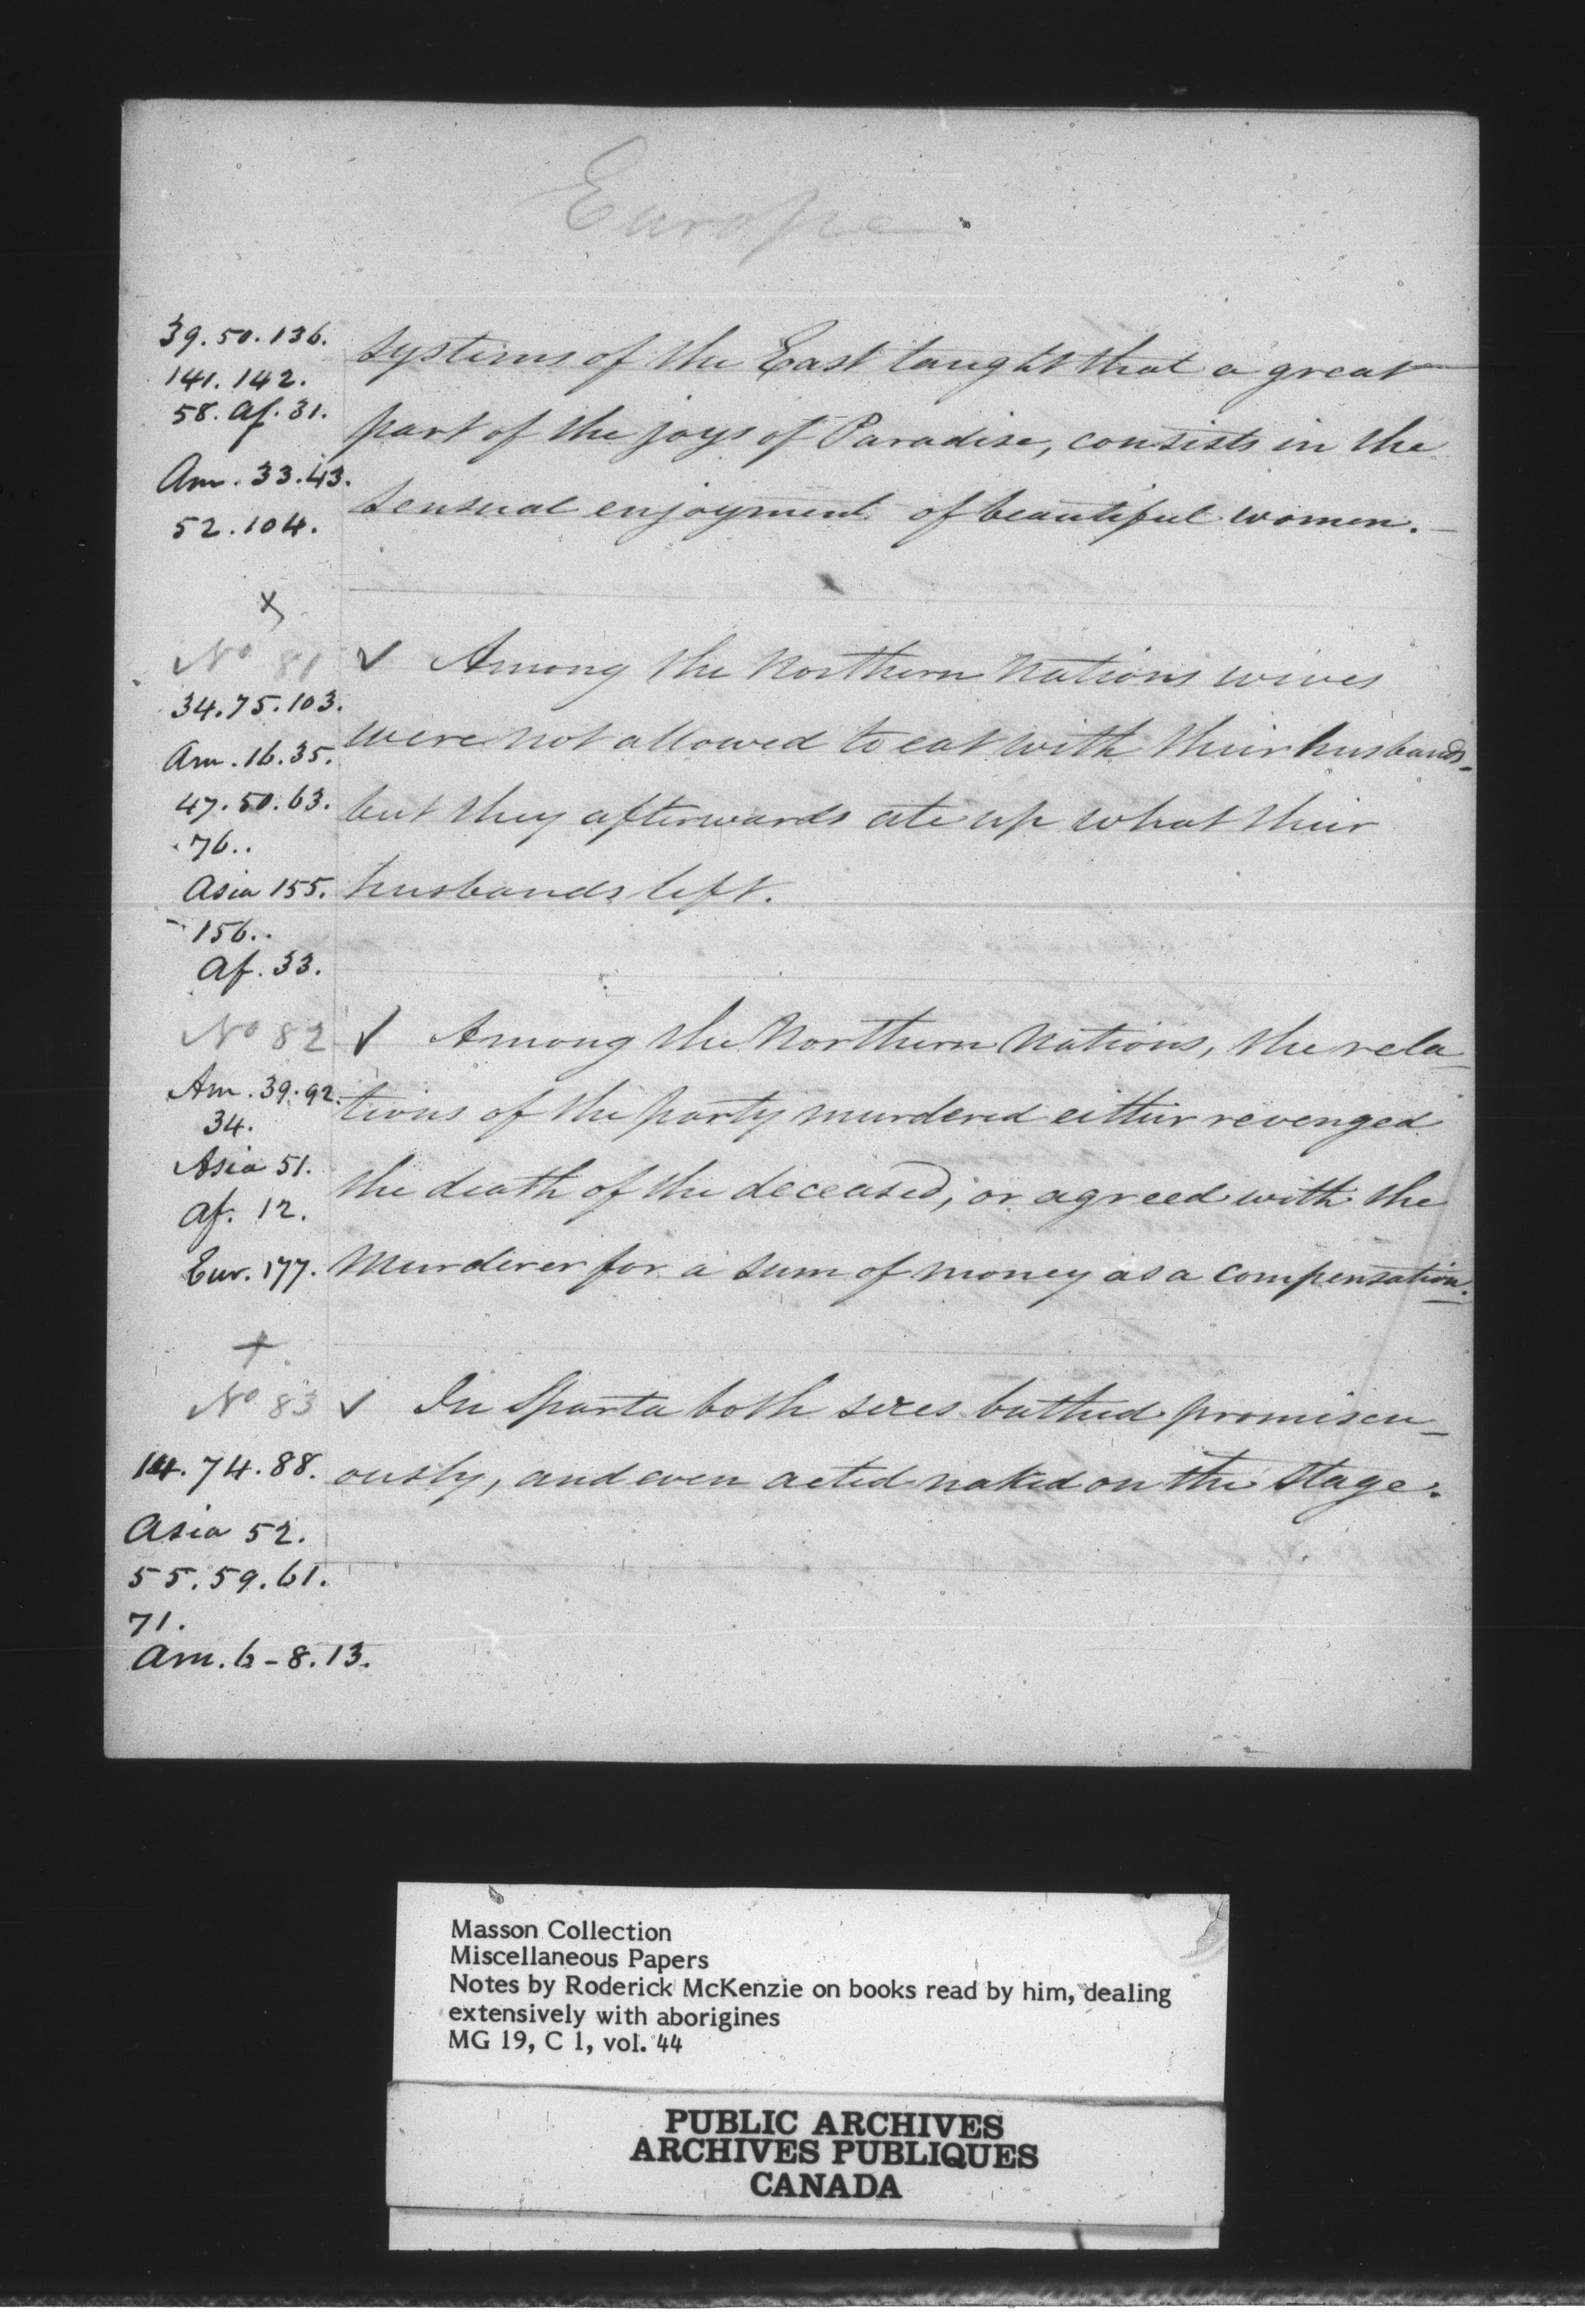 Europe
39. 50. 136.
141. 142.
58. Af. 31.
Am. 33. 43.
52. 104.
systems of the East taught that a great
part of the joys of Paradise, consists in the
sensual enjoyment of beautiful women.
x
No 81
34. 75. 103.
Am. 16. 35.
47. 50. 63.
76..
Asia 155.
156..
Af. 33.
✓ Among the Northern Nations wives
were not allowed to eat with their husbands
but they afterwards ate up what their
husbands left.
No 82
Am. 39. 92.
34.
Asia 51.
Af. 12.
Eur. 177.
✓ Among the Northern Nations, the rela_
tions of the party murdered either revenged
the death of the deceased, or agreed with the
Murderer for a sum of money as a compensation.
+
No 83
14. 74. 88.
Asia 52.
55. 59. 61.
71.
Am. 6-8. 13.
✓ In Sparta both sexes bathed promiscu_
ously, and even acted naked on the Stage.
Masson Collection
Miscellaneous Papers
Notes by Roderick McKenzie on books read by him, dealing
extensively with aborigines
MG 19, C 1, vol. 44
PUBLIC ARCHIVES
ARCHIVES PUBLIQUES
CANADA